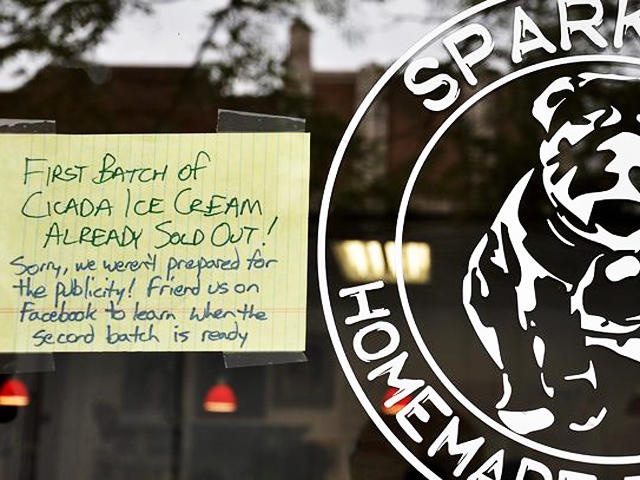 First Batch of
Cicada Ice Cream
Already Sold Out!
Sorry, we weren't prepared for
the publicity! Friend us on
Facebook to learn when the
second batch is ready
SPARK
HOMEMADE